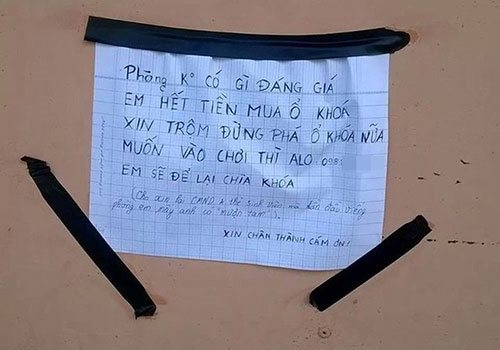 Phòng K° CÓ GÌ ĐÁNG GIÁ
EM HẾT TIỀN MUA Ổ KHOÁ
XIN TRỘM ĐỪNG PHÁ Ổ KHÓA NỮA
MUỐN VÀO CHƠI THÌ ALO 098
EM SẼ ĐỂ LẠI CHÌA KHÓA
(Cho xin lại CMND & thẻ sinh viên, mà lần đầu viếng
phòng em này anh có "mượn tạm").
XIN CHÂN THÀNH CẢM ƠN!